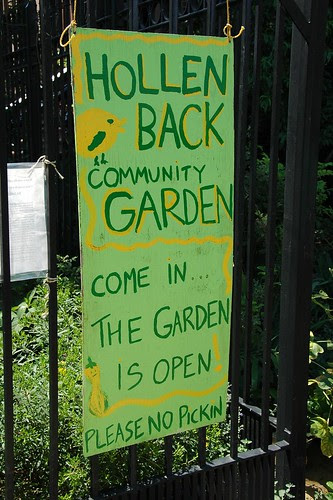 HOLLEN
BACK
COMMUNITY
GARDEN
COME IN...
THE GARDEN
IS OPEN!
PLEASE NO PICKIN